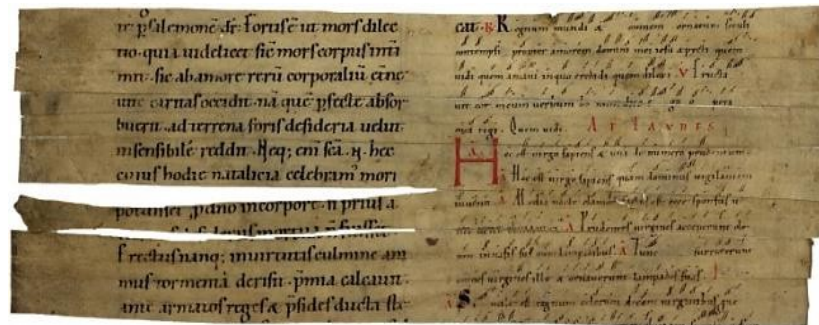 p salemonē dr. Fortis ē ut mors dilec
tio. quia uidelicet sic mors corpus inti
mit. sic ab amore rerū corporaliū etne
uite caritas occidit. nā quē pfecte absor
buerit. ad terrena foris desideria uelut
insensibilē reddit. Neq; eni scā. hec
cuius hodie natalicia celebram mori
potuisset p do in corpore. n prius a
mortua
Erectus nanq; in uirtutis culmine ani
mus tormenta derisit. pmia calcauit.
ante armatos reges & psides ducta ste
cat. R Regnum mundi & omnem ornatum seculi
contempsi propter amorem domini mei quem
uidi quem amaui in quo credidi quem dilexi. V Eructa
uit cor meum uerbum bo opera
mea regi. Quem uidi. AD LAUDES
Hec est uirgo sapiens & una de numero prudentum.
A Hec est uirgo sapiens quam dominus uigilantem
inuenit. A Media nocte clamor est ecce sponsus u
A Prudentes uirgines
lampadibus. A Tunc surrexerunt
omnes uirgines ille & ornauerunt lampades suas.
A Simile est regnum celorum decem uirginibus que